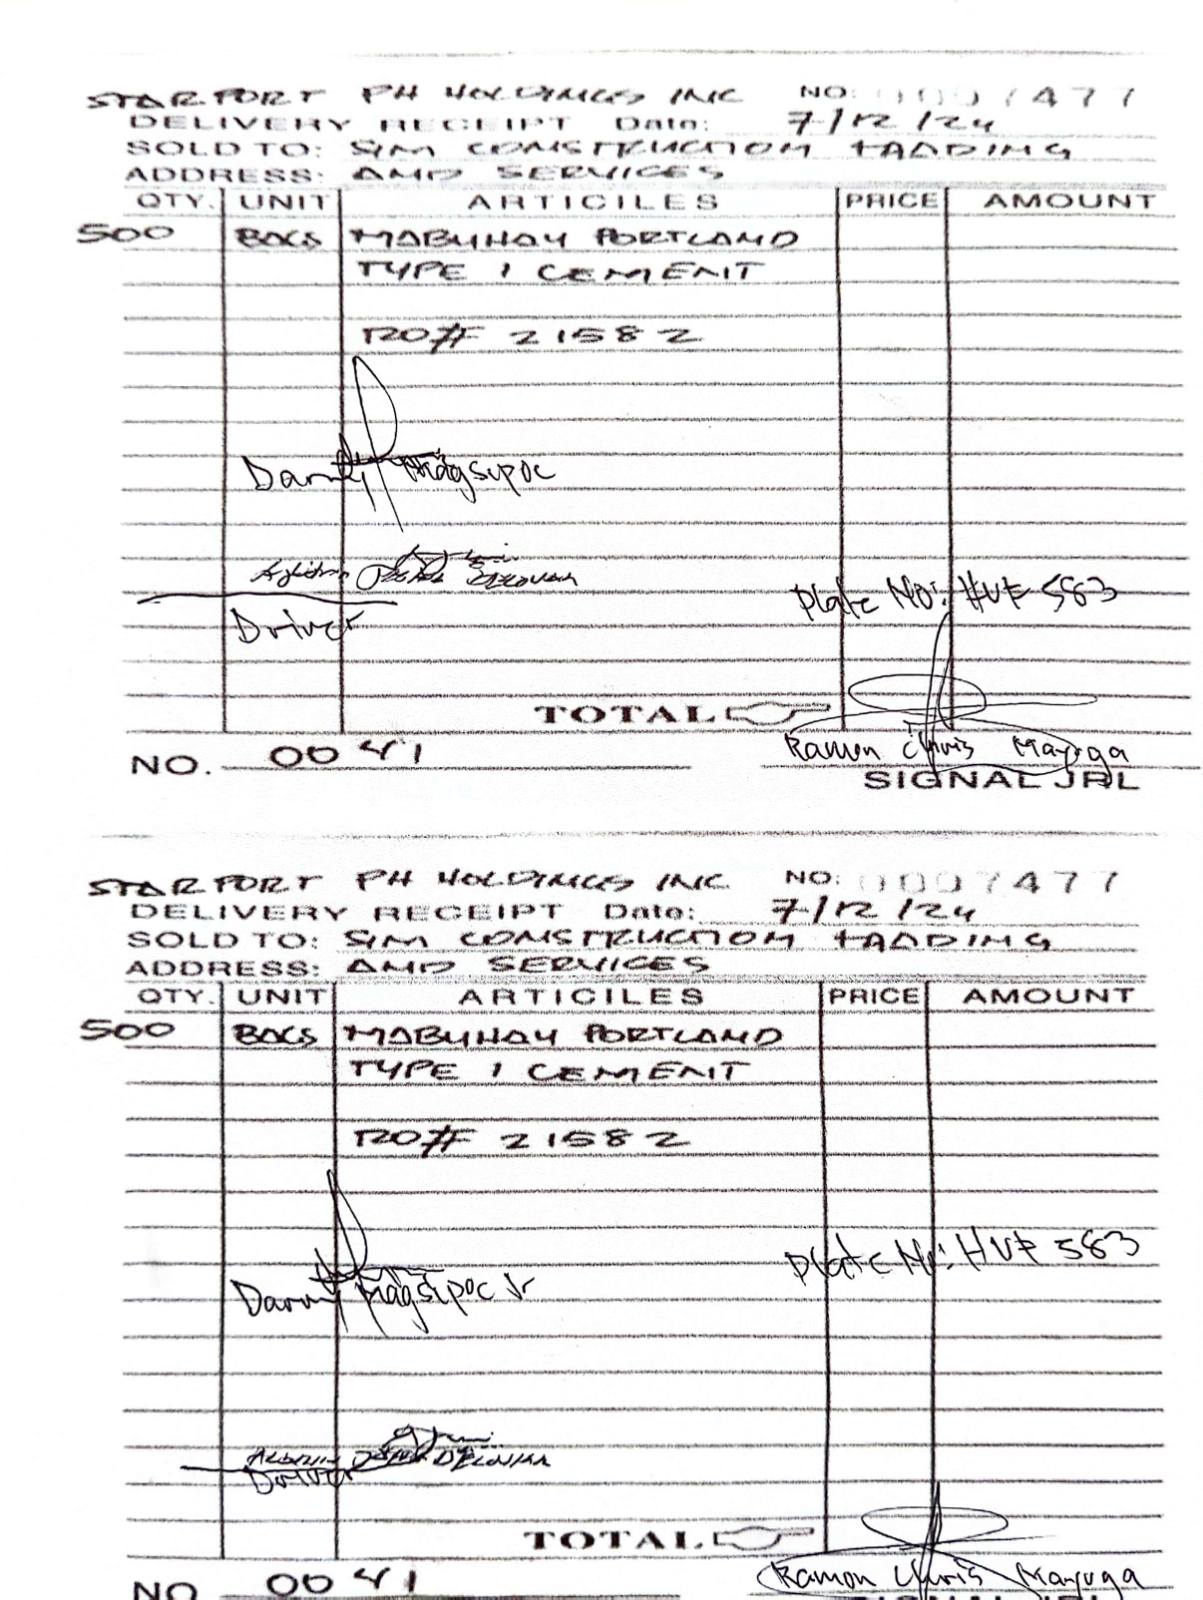 STARPORT PH HOLDINGS INC NO: 0007477
DELIVERY RECEIPT Date: 7/12/24
SOLD TO: SIM CONSTRUCTION TRADING
ADDRESS: AND SERVICES
QTY. UNIT ARTICILES PRICE AMOUNT
500 BAGS MABUHAY PORTLAND
TYPE 1 CEMENT
RO# 21582
Danny Magsipoc
Plate No: HVE 583
Driver
TOTAL
Ramon Chris Mayuga
NO. 0041
SIGNAL JRL
STARPORT PH HOLDINGS INC NO: 0007477
DELIVERY RECEIPT Date: 7/12/24
SOLD TO: SIM CONSTRUCTION TRADING
ADDRESS: AND SERVICES
QTY. UNIT ARTICILES PRICE AMOUNT
500 BAGS MABUHAY PORTLAND
TYPE 1 CEMENT
RO# 21582
Plate No: HVE 583
Danny Magsipoc Jr
Driver
TOTAL
Ramon Chris Mayuga
NO 0041
SIGNAL JRL